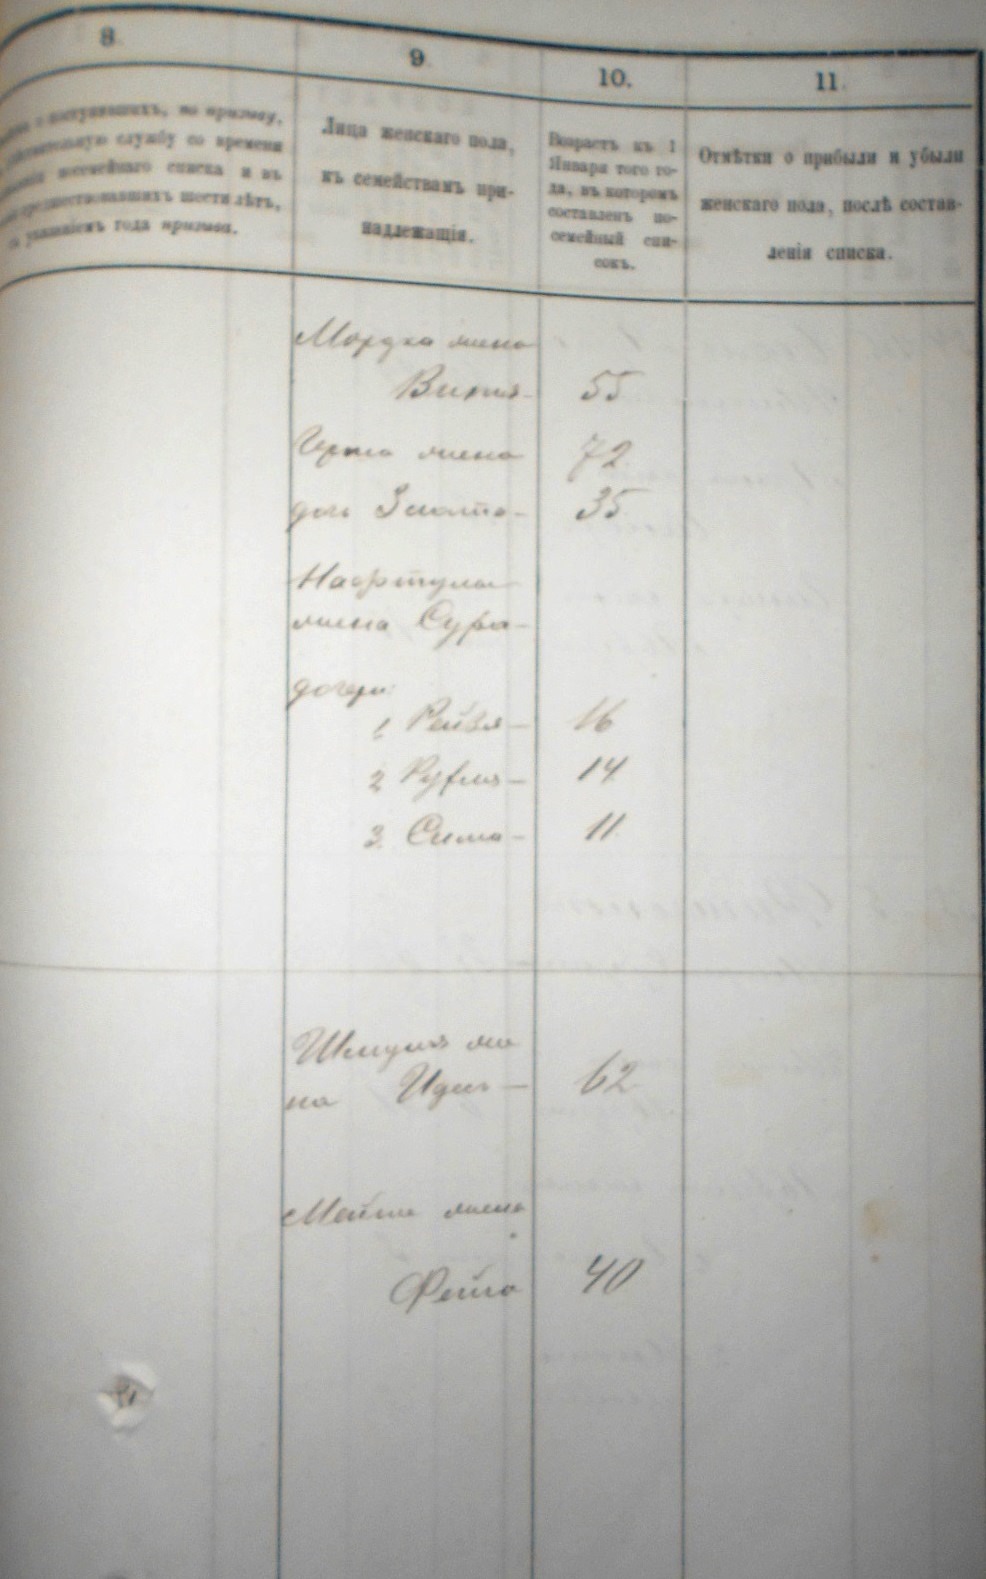 8.
9.
10.
11.
поступившихъ, по призыву,
службу со времени
посемейнаго списка и въ
предшествовавшихъ шести лѣтъ,
съ указаніемъ года призыва.
Лица женскаго пола,
къ семействамъ при-
надлежащія.
Возрастъ къ 1
Января того го-
да, въ которомъ
составленъ по-
семейный спи-
сокъ.
Отмѣтки о прибыли и убыли
женскаго пола, послѣ состав-
ленія списка.
Мордха жена
55
жена 72
доч Злата - 35
жена Сура -
дочери:
1 Рейзя - 16
2 - 14
3. Сима - 11.
Шмуля же
на - 62
жена
Фейга 40